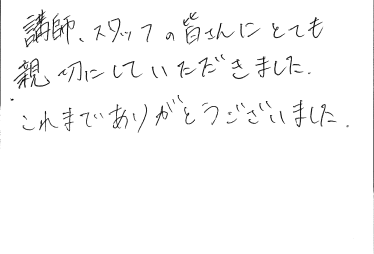 講師、スタッフの皆さんにとても
親切にしていただきました.
これまでありがとうございました.